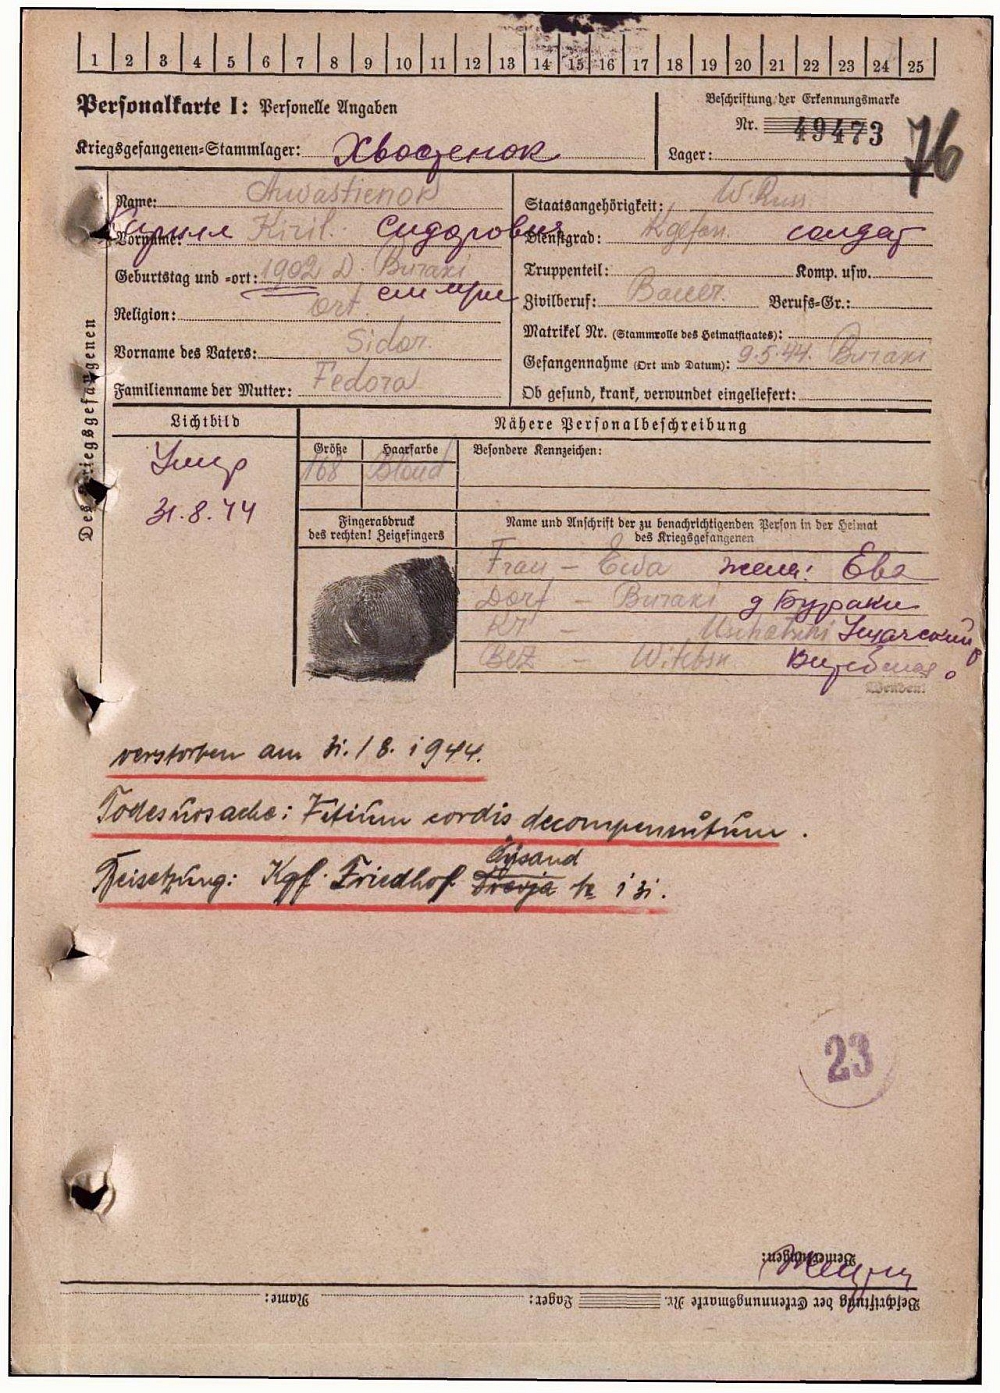 1 2 3 4 5 6 7 8 9 10 11 12 13 14 15 16 17 18 19 20 21 22 23 24 25
Personalkarte I: Personelle Angaben
Beschriftung der Erkennungsmarke
Nr. 49473
76
Kriegsgefangenen-Stammlager: Хвощенок
Lager:
Des Kriegsgefangenen
Name: Chwastienok
Staatsangehörigkeit: W. Russ.
Vorname: Кирилл Kiril. Сидорович
Dienstgrad: Kgfan. солдат
Geburtstag und -ort: 1902 D. Buraki
Truppenteil: Komp. usw.
Religion: Ort.
Zivilberuf: Bauer. Berufs-Gr.:
Matrikel Nr. (Stammrolle des Heimatstaates):
Vorname des Vaters: Sidor
Gefangennahme (Ort und Datum): 9.5.44. Buraki
Familienname der Mutter: Fedora
Ob gesund, krank, verwundet eingeliefert:
Lichtbild
Nähere Personalbeschreibung
Größe Haarfarbe Besondere Kennzeichen:
168 blond
Умер
31.8.44
Fingerabdruck
des rechten! Zeigefingers
Name und Anschrift der zu benachrichtigenden Person in der Heimat
des Kriegsgefangenen
Frau – Ewa жена: Ева
Dorf – Buraki д Бураки
Kr – Uschatski Ушачский р
Bez – Witebsk Витебская о
Wenden!
verstorben am 31./8.1944.
Todesursache: Vitium cordis decompensatum.
Oysand
Beisetzung: Kgf. Friedhof Trevja 131.
23
Bemerkungen:
Beschriftung der Erkennungsmarke Nr. Lager: Name: